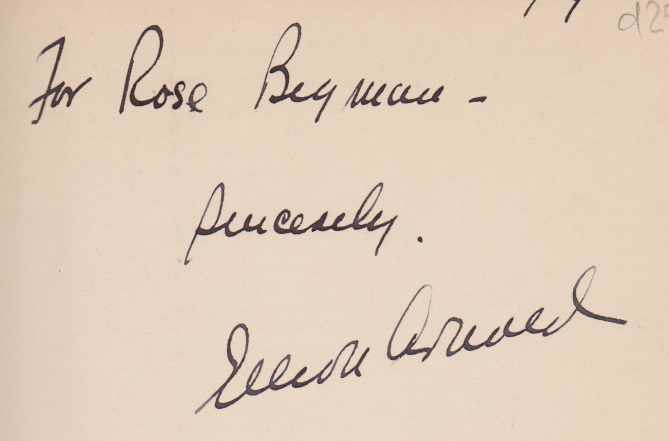 For Rose Beyman -
Sincerely.
Elliott Arnold